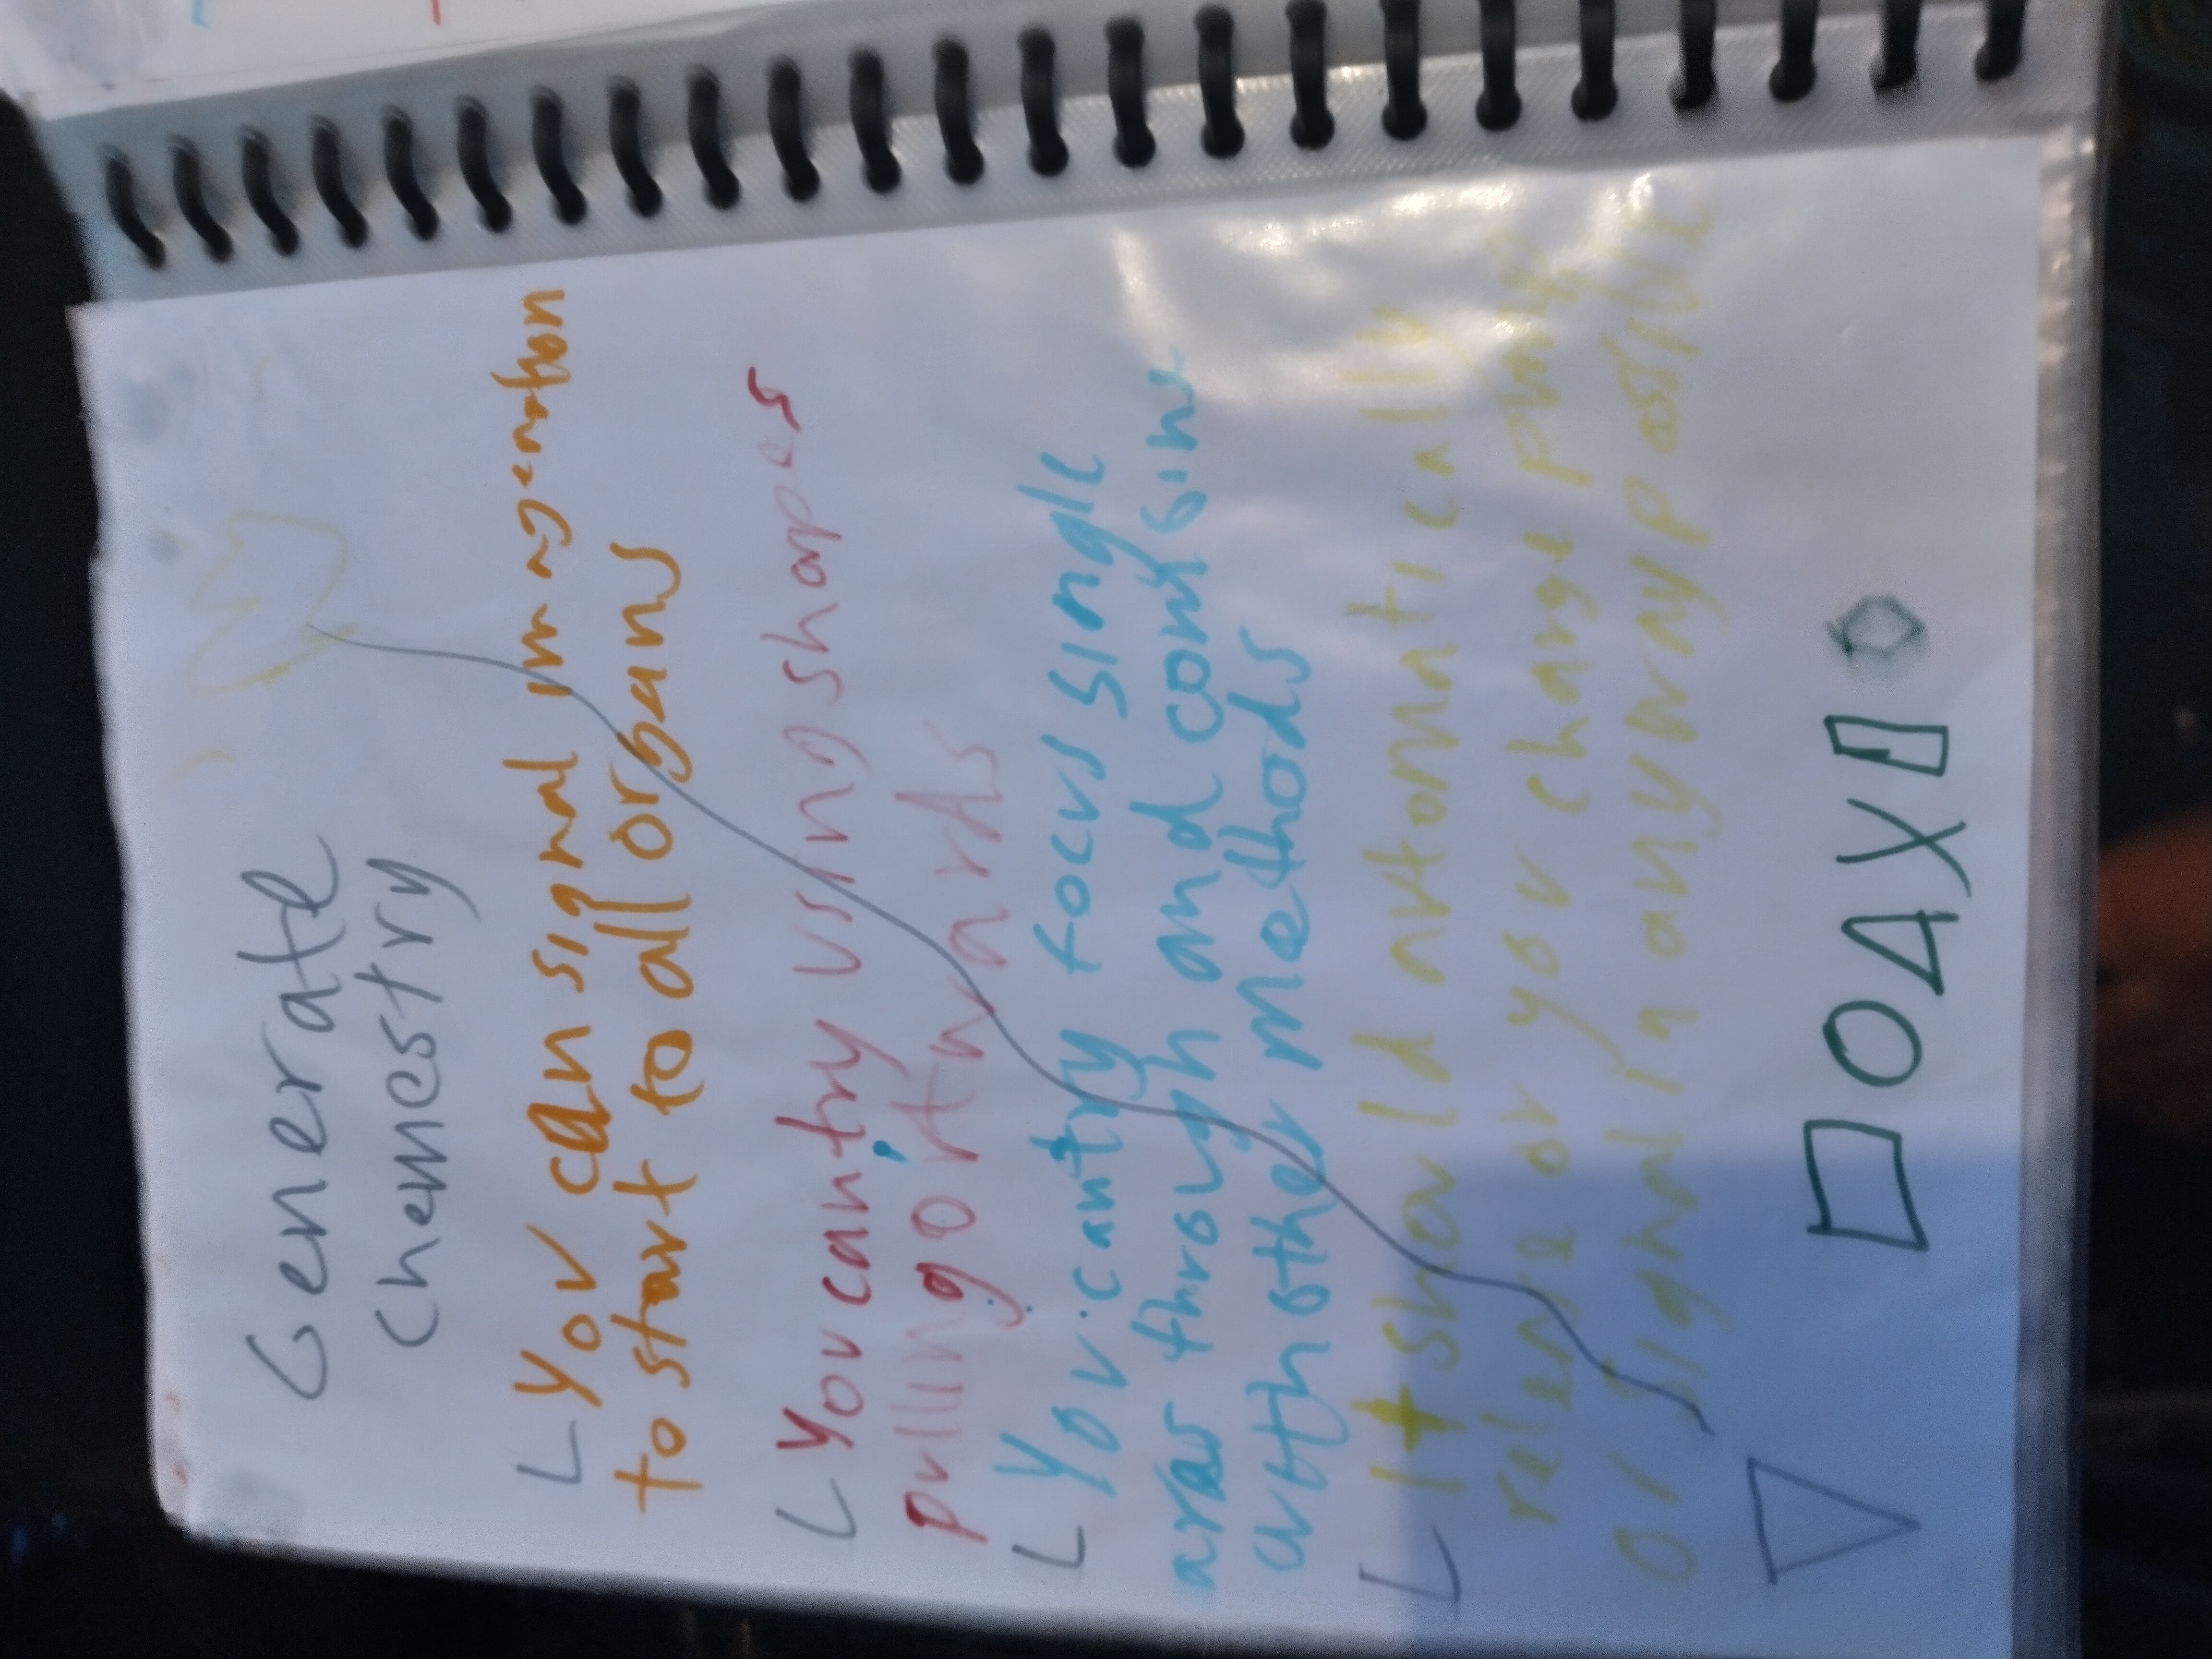 Generate
chemestry
You can signal imagenation
to start to all organs
You can try using shapes
pulling
You can try focus single
araw through and
with other methods
It should automatically
release or you change
or signal in any way possible